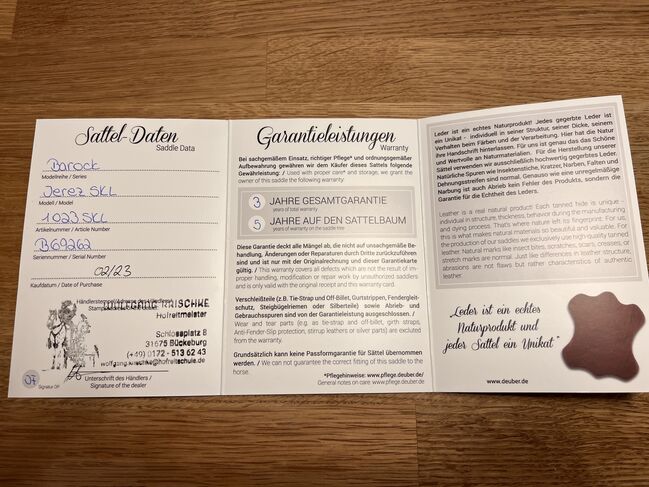 Sattel-Daten
Saddle Data
Barock
Modellreihe / Series
Jerez SKL
Modell / Model
1023 SKL
Artikelnummer / Article Number
B69262
Seriennummer / Serial Number
02/23
Kaufdatum / Date of Purchase
Händlerstempel/Adresse des Händlers
Hofreitmeister
Schlossplatz 8
31675 Bückeburg
(+49) 0172 - 513 62 43
wolfgang.krischke@hofreitschule.de
Unterschrift des Händlers /
Signature of the dealer
Signatur DP
Garantieleistungen
Warranty
Bei sachgemäßem Einsatz, richtiger Pflege* und ordnungsgemäßer
Aufbewahrung gewähren wir dem Käufer dieses Sattels folgende
Gewährleistung: / Used with proper care* and storage, we grant the
owner of this saddle the following warranty:
3 JAHRE GESAMTGARANTIE
years of total warranty
5 JAHRE AUF DEN SATTELBAUM
years of warranty on the saddle tree
Diese Garantie deckt alle Mängel ab, die nicht auf unsachgemäße Be-
handlung, Änderungen oder Reparaturen durch Dritte zurückzuführen
sind und ist nur mit der Originalrechnung und dieser Garantiekarte
gültig. / This warranty covers all defects which are not the result of im-
proper handling, modification or repair work by unauthorized saddlers
and is only valid with the original receipt and this warranty card.
Verschleißteile (z.B. Tie-Strap und Off-Billet, Gurtstrippen, Fendergleit-
schutz, Steigbügelriemen oder Silberteile) sowie Abrieb- und
Gebrauchsspuren sind von der Garantieleistung ausgeschlossen. /
Wear and tear parts (e.g. as tie-strap and off-billet, girth straps,
Anti-Fender-Slip protection, stirrup leathers or silver parts) are excluded
from the warranty.
Grundsätzlich kann keine Passformgarantie für Sättel übernommen
werden. / We can not guarantee the correct fitting of this saddle to the
horse.
*Pflegehinweise: www.pflege.deuber.de/
General notes on care: www.pflege.deuber.de
Leder ist ein echtes Naturprodukt! Jedes gegerbte Leder ist
ein Unikat - individuell in seiner Struktur, seiner Dicke, seinem
Verhalten beim Färben und der Verarbeitung. Hier hat die Natur
ihre Handschrift hinterlassen. Für uns ist genau das das Schöne
und Wertvolle an Naturmaterialien. Für die Herstellung unserer
Sättel verwenden wir ausschließlich hochwertig gegerbtes Leder.
Natürliche Spuren wie Insektenstiche, Kratzer, Narben, Falten und
Dehnungsstreifen sind normal. Genauso wie eine unregelmäßige
Narbung ist auch Abrieb kein Fehler des Produkts, sondern die
Garantie für die Echtheit des Leders.
Leather is a real natural product! Each tanned hide is unique -
individual in structure, thickness, behavior during the manufacturing
and dying process. That's where nature left its fingerprint. For us,
this is what makes natural materials so beautiful and valuable. For
the production of our saddles we exclusively use high-quality tanned
leather. Natural marks like insect bites, scratches, scars, creases, or
stretch marks are normal. Just like differences in leather structure,
abrasions are not flaws but rather characteristics of authentic
leather.
„Leder ist ein echtes
Naturprodukt und
jeder Sattel ein Unikat."
www.deuber.de